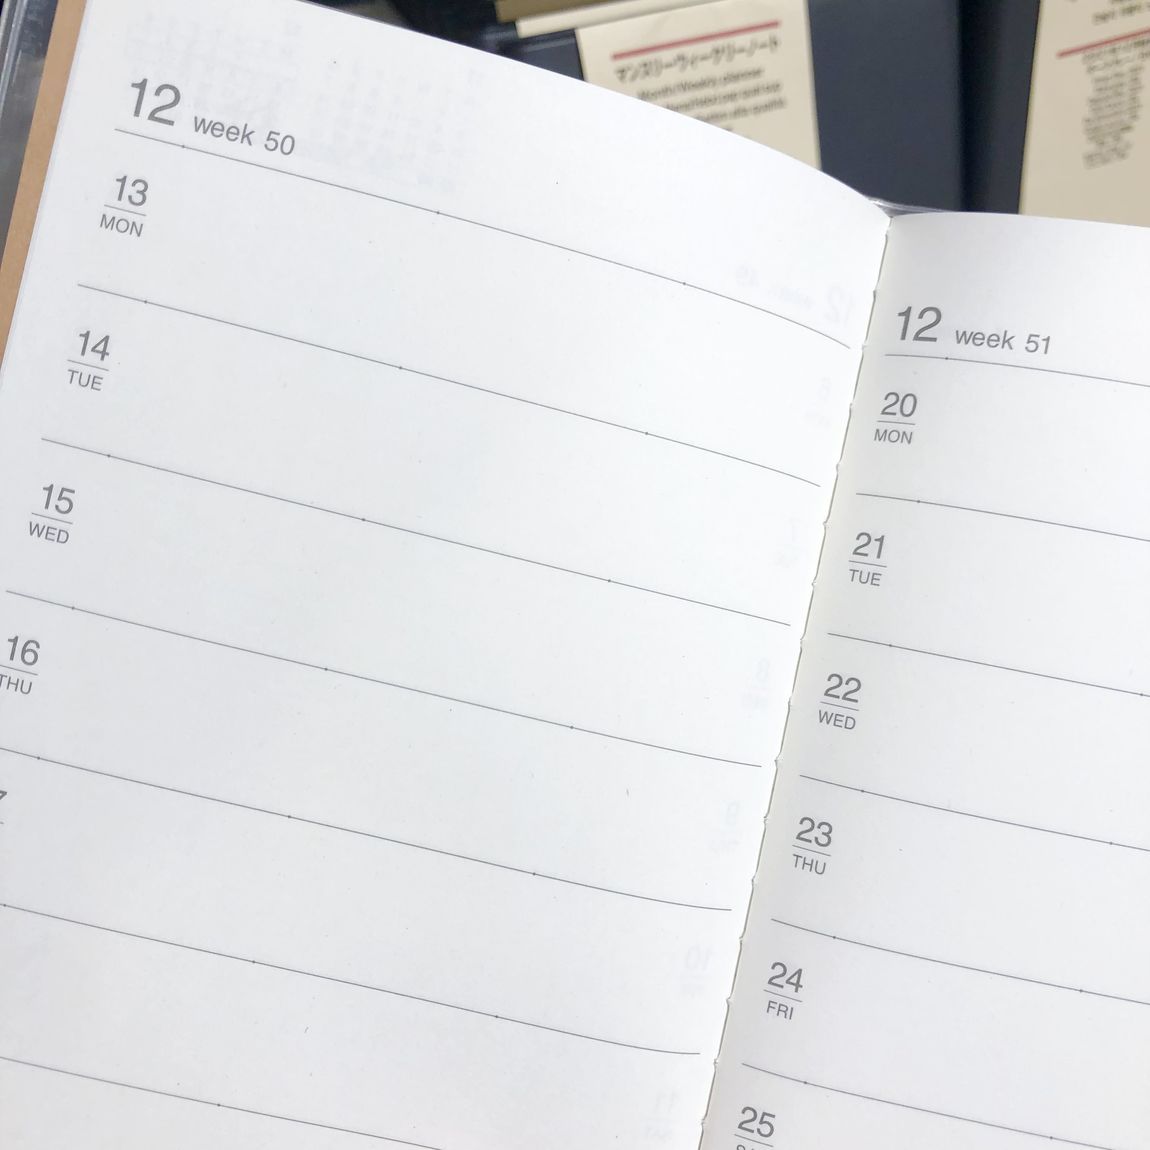 マンスリーウィークリーノート
Monthly/Weekly planner
12 week 50
13
MON
14
TUE
15
WED
16
THU
12 week 51
20
MON
21
TUE
22
WED
23
THU
24
FRI
25